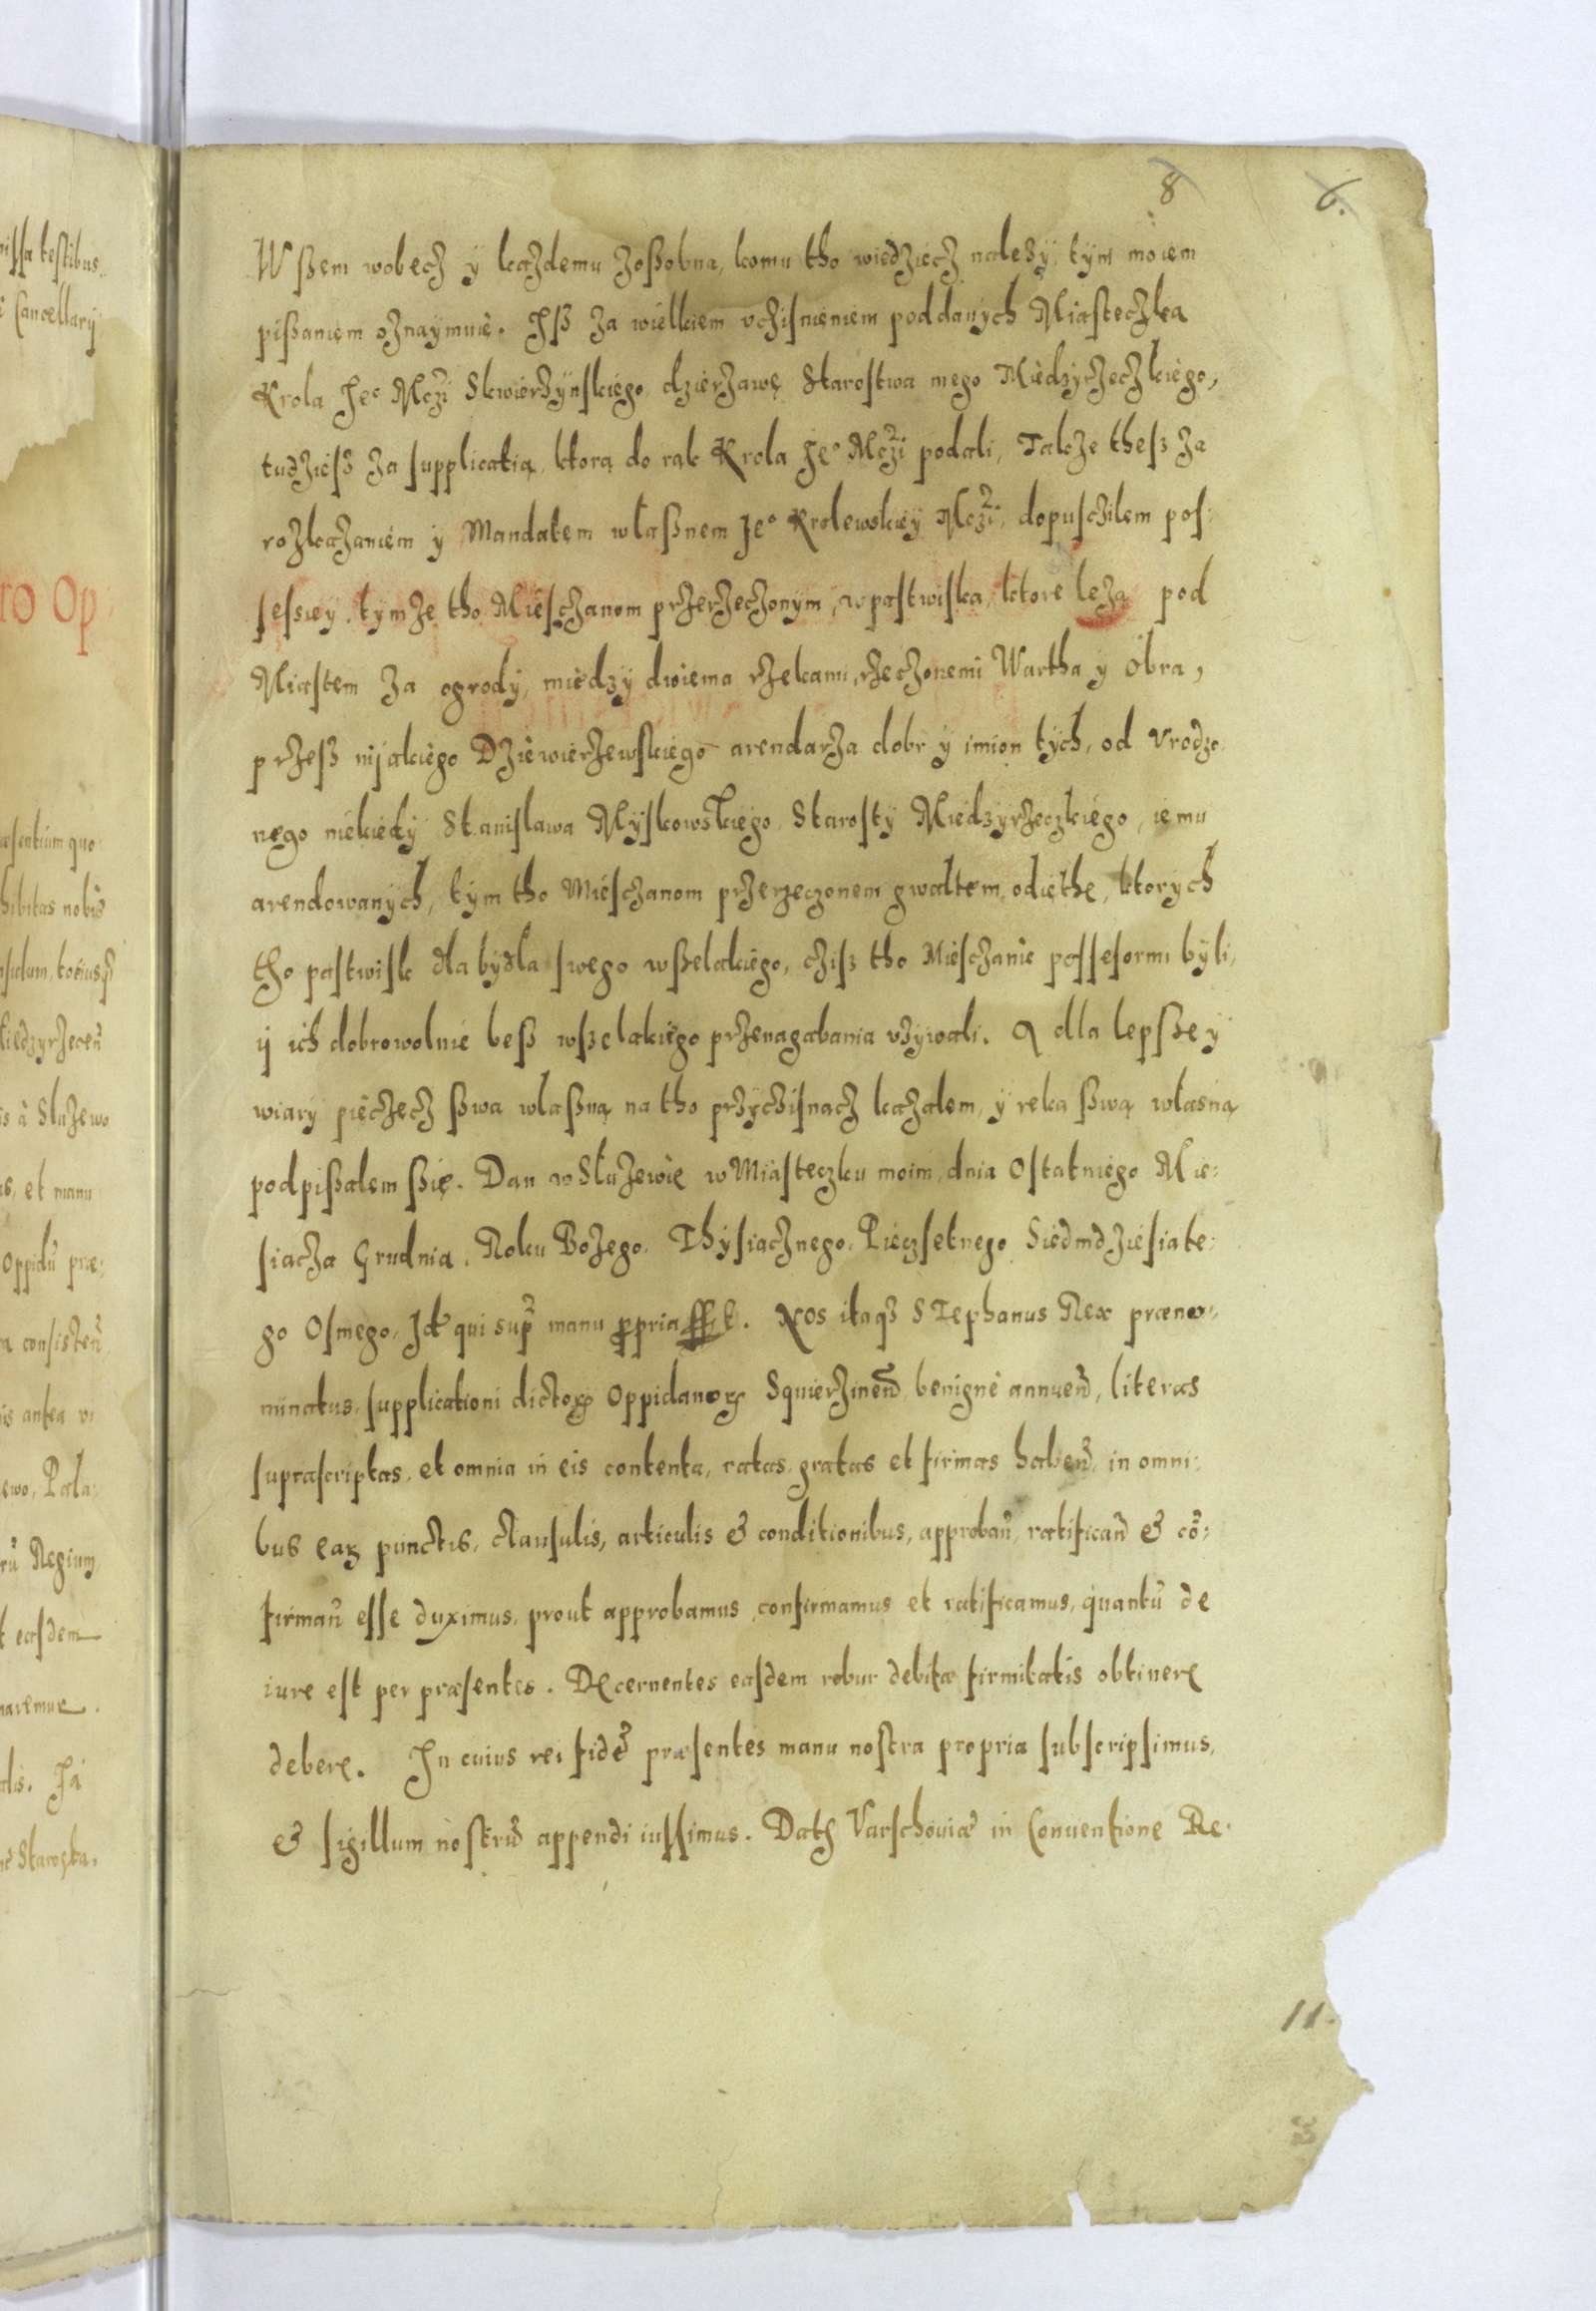 8
6.
Wßem wobecz ÿ kazdemu zoßobna, komu tho wiedziecz należÿ, tÿm moiem
pißaniem oznaÿmuie. Jß za wielkiem vcżisnieniem poddanÿch Miasteczka
Krola Je° Mczi Skwierżÿnskiego dzierżawę Starostwa mego Miedzÿrzeczkiego,
tudziesß za supplicatią, ktorą do rąk Krola Je° Mczi podali, Takze thesz za
rozkazaniem ÿ Mandatem właßnem Je° Krolewskieÿ Mczi, dopuscżilem pos:
sessieÿ, tÿmze tho Miesczanom przerzeczonÿm, w pastwiska, ktore leżą pod
Miastem za ogrodÿ, miedzÿ dwiema rzekami, rzeczonemi Wartha ÿ Obra,
przesß nijakiego Dziewierzewskiego arendarza dobr ÿ imion tÿch, od Vrodzo
nego niekiedÿ Stanislawa Mÿskowskiego Starostÿ Miedzÿrzeczkiego, iemu
arendowanÿch, tÿm tho Miesczanom przerzeczonem gwaltem, odięthe, ktorych
tho pastwisk dla bÿdła swego wßelakiego, cżisz tho Miesczanie possesormi bÿli,
ÿ ich dobrowolnie beß wszelakiego przenagabania vżÿwali. A dlla lepßeÿ
wiarÿ pieczecz ßwa właßną na tho przÿcżisnacz kazalem, ÿ reka ßwą własną
podpißalem ßię. Dan w Służewie w Miasteczku moim, dnia Ostatniego Mie:
siacza Grudnia, Roku Bożego, Thÿsiacznego, Pieczsetnego Siedmdziesiate:
go Osmego, Jd qui sup manu ppria sst. Nos itaqz STephanus Rex præno:
minatus, supplicationi dictoꝝ Oppidanoꝝ Squierzinen̄ benignè annuen̄, literas
suprascriptas, et omnia in eis contenta, ratas, gratas et firmas haben̄, in omni:
bus eaꝝ punctis, clausulis, articulis & conditionibus, approban̄, ratifican̄ & cō:
firman̄ esse duximus, prout approbamus, confirmamus et ratificamus, quantū de
iure est per præsentes. Decernentes easdem robur debitæ firmitatis obtinere
debere. In cuius rei fidē præsentes manu nostra propria subscripsimus,
& sigillum nostrū appendi iussimus. Datꝭ Varschoviæ in Conuentione Re:
11.